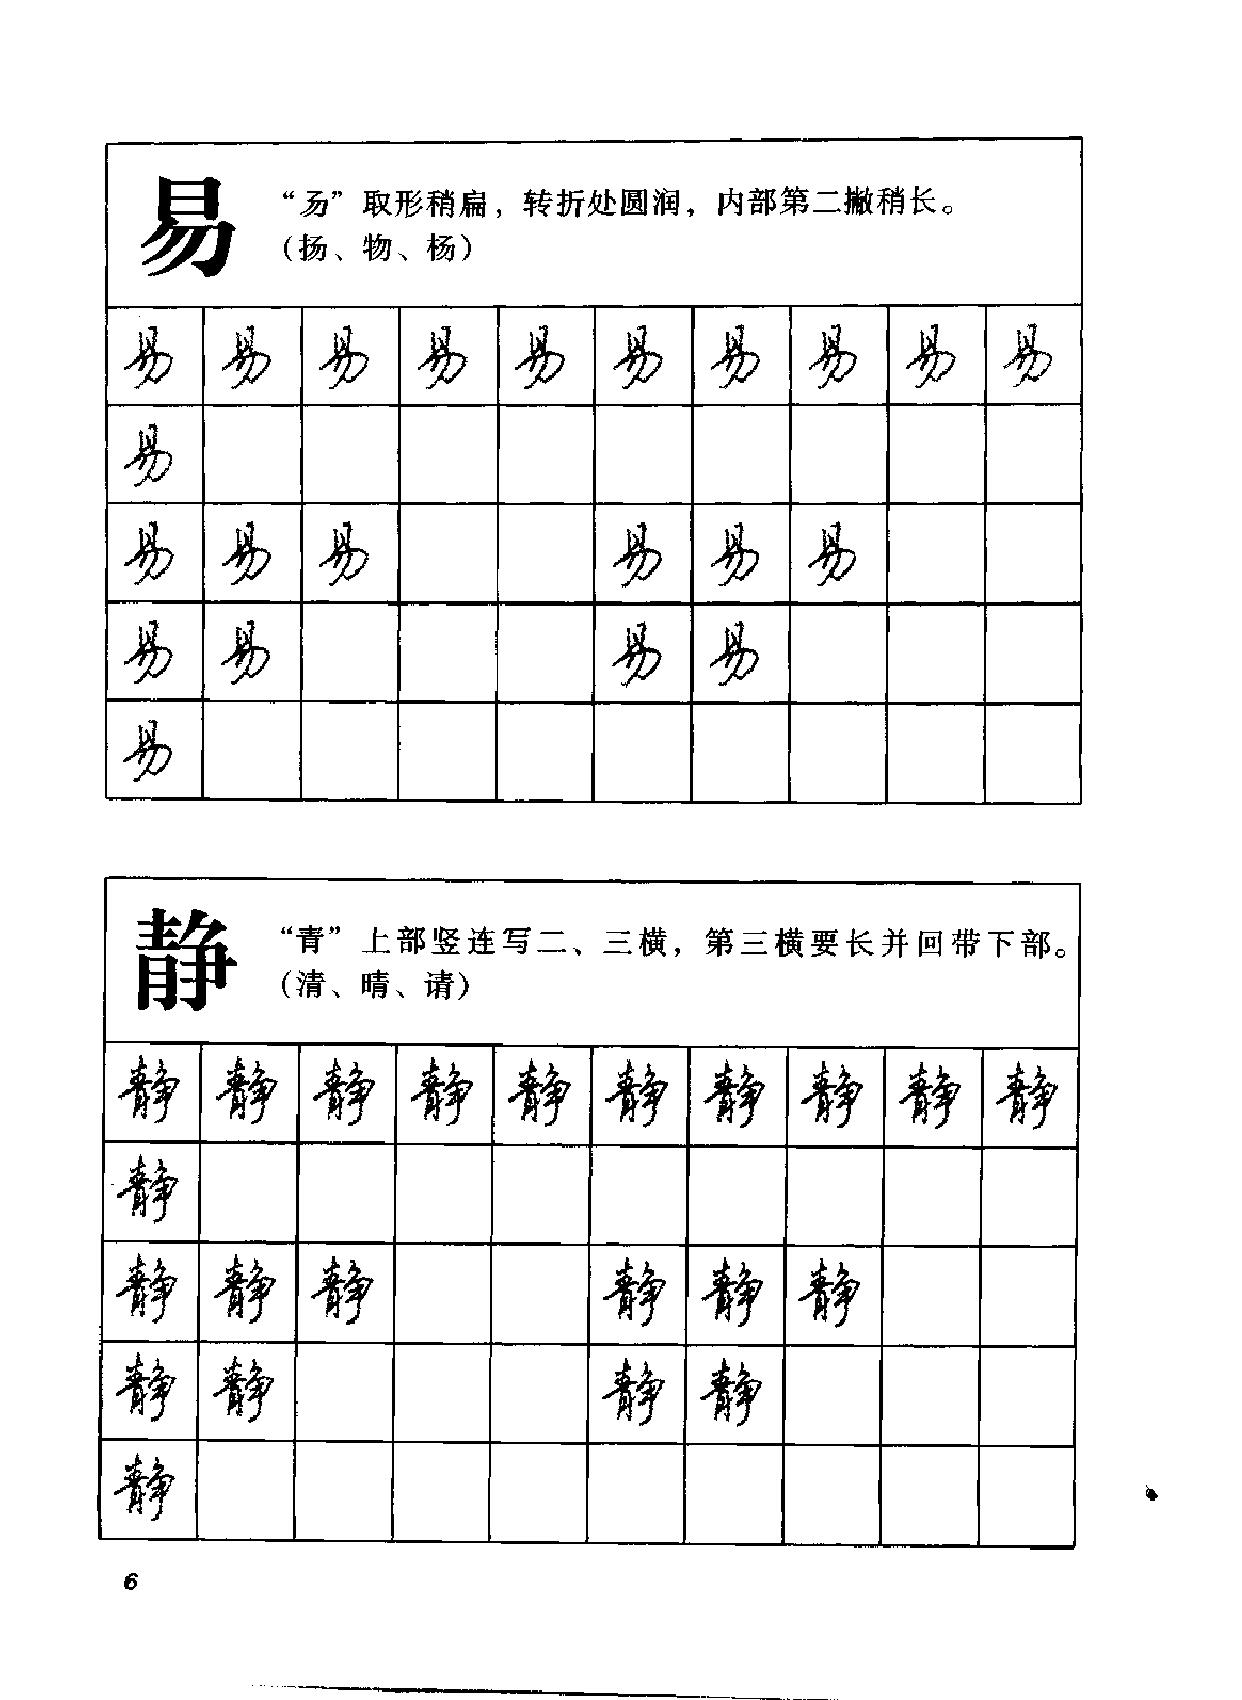 易
“㐆”取形稍扁，转折处圆润，内部第二撇稍长。
（扬、物、杨）
易 易 易 易 易 易 易 易 易 易
易
易 易 易 易 易 易
易 易 易 易
易
静
“青”上部竖连写二、三横，第三横要长并回带下部。
（清、晴、请）
静 静 静 静 静 静 静 静 静 静
静
静 静 静 静 静 静
静 静 静 静
静
6